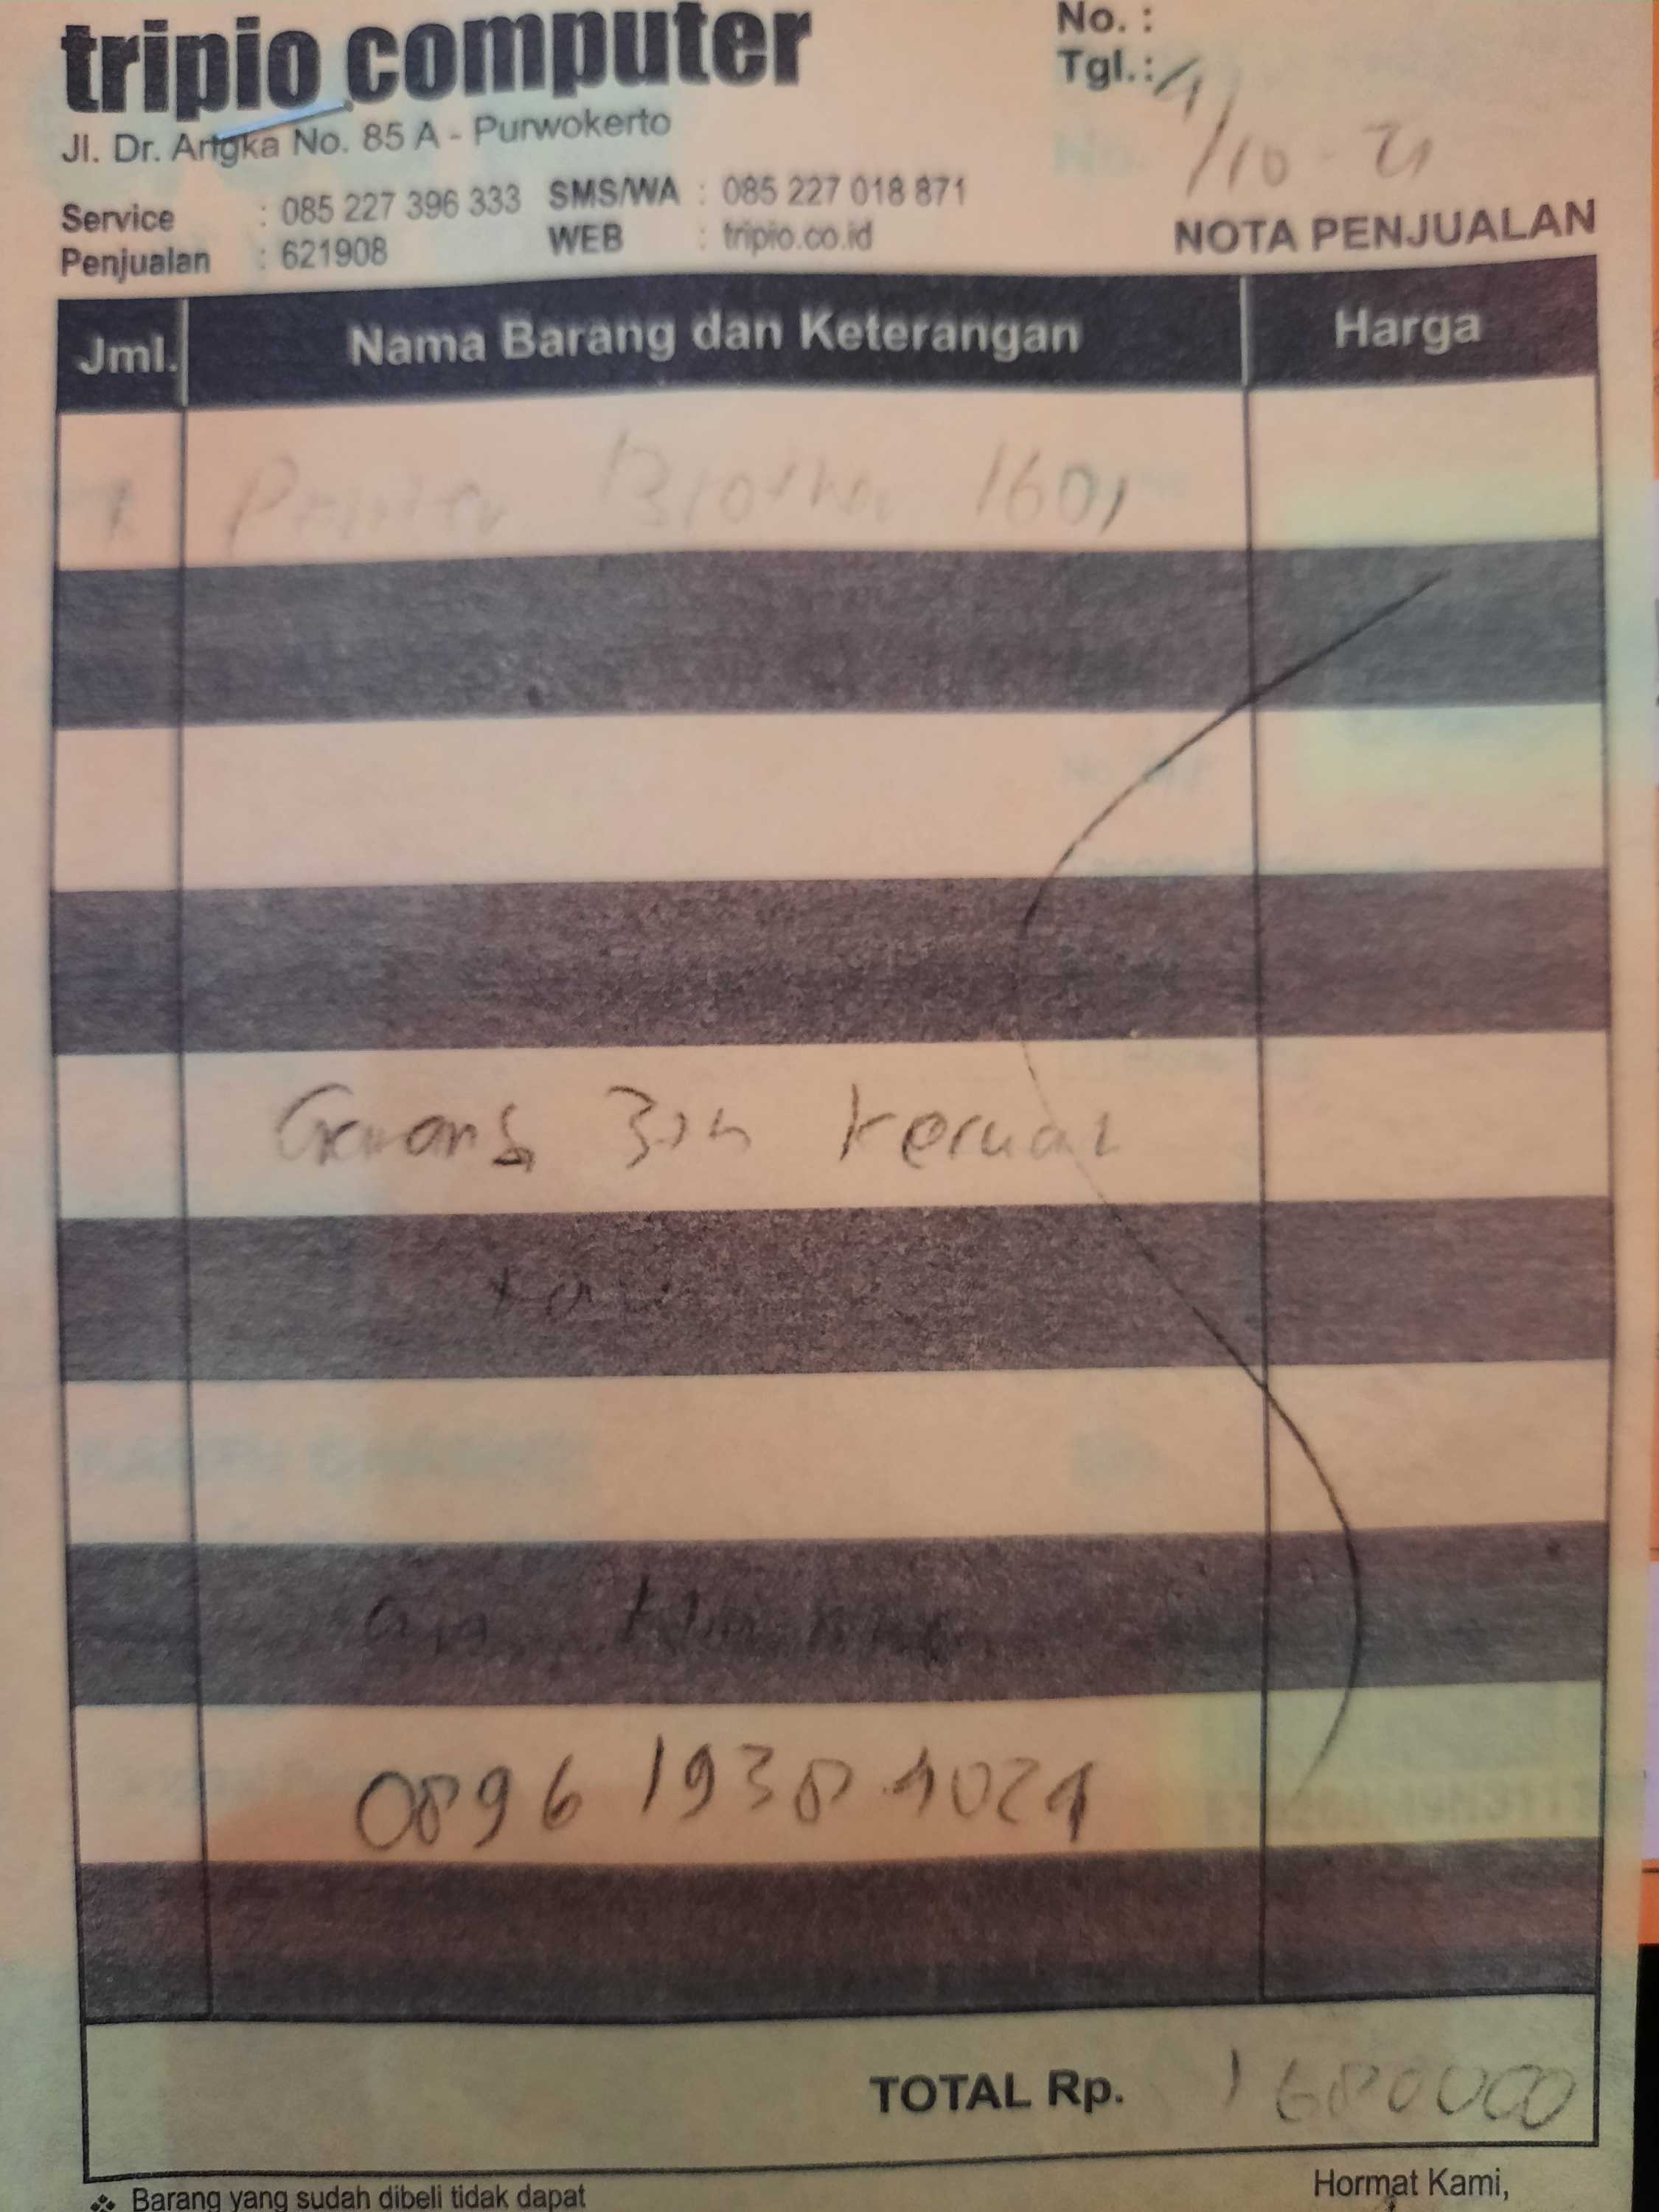 tripio computer
Jl. Dr. Angka No. 85 A - Purwokerto
Service : 085 227 396 333 SMS/WA : 085 227 018 871
Penjualan : 621908 WEB : tripio.co.id
No. :
Tgl.: 4/10-21
NOTA PENJUALAN
Jml. Nama Barang dan Keterangan Harga
1 Printer Brother 1601
Garansi 3th kecuali
0896 1938 4024
TOTAL Rp. 1680000
Barang yang sudah dibeli tidak dapat
Hormat Kami,